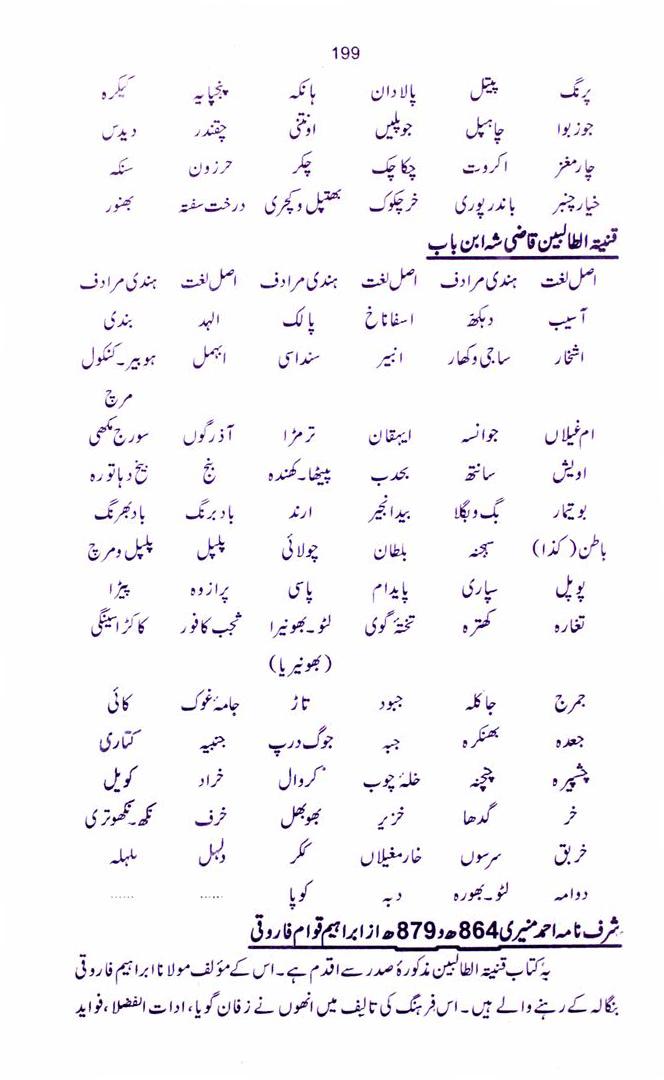 199
پرنگ پیتل پالادان ہانکہ پنچپایہ کیکرہ
جوز بوا چاہپل جوپلیں اونتنی چقندر دیدس
چارمغز اکروت چکاچک چکر حرزون سنکہ
خیارچنبر باندرپوری خرچکوک بھتپل وکچری درخت سفتہ بھنور
قنیتہ الطالبین قاضی شہ ابن باب
اصل لغت ہندی مرادف اصل لغت ہندی مرادف اصل لغت ہندی مرادف
آسیب دہکھّ اسفاناخ پالک الہد بندی
اشخار ساجی وکھار انبیر سنداسی ابہمل ہوبیر۔ کنکول
مرچ
ام غیلاں جوانسہ ایہقان ترمڑا آذرگوں سورج مکھی
اویش سانتھ بحدب پیٹھا۔ کھندہ بنج بیخ دہاتورہ
بوتیمار بگ وبگلا بیدانجیر ارند بادبرنگ بادبھرنگ
باطن (کذا) سہجنہ بلطان چولائی پلپل پلپل ومرچ
پوپل سپاری پایدام پاسی پرازوہ پیڑا
تغارہ کھترہ تختۂ گوی لٹو۔ بھونیرا شجب کافور کاکڑاسینگی
(بھونیریا)
جمرج جاکلہ جبود تاڑ جامۂ غوک کائی
جعدہ بھنکرہ جبہ جوگ درپ جتبیہ کتاری
چشپیرہ چچنہ خلۂ چوب کروال خراد کویل
خر گدھا خزیر بھوبھل خرف نکھ۔ نکھوتری
خربق سرسوں خارمغیلاں ککر دلہل ملہلہ
دوامہ لٹو۔ بھورہ دبہ کوپا ...... ......
شرف نامہ احمد منیری 864ھ و 879ھ از ابراہیم قوام فاروقی
یہ کتاب قنیتہ الطالبین مذکورۂ صدر سے اقدم ہے۔ اس کے مؤلف مولانا ابراہیم فاروقی
بنگالہ کے رہنے والے ہیں۔ اس فرہنگ کی تالیف میں انھوں نے زفان گویا، ادات الفضلا، فواید